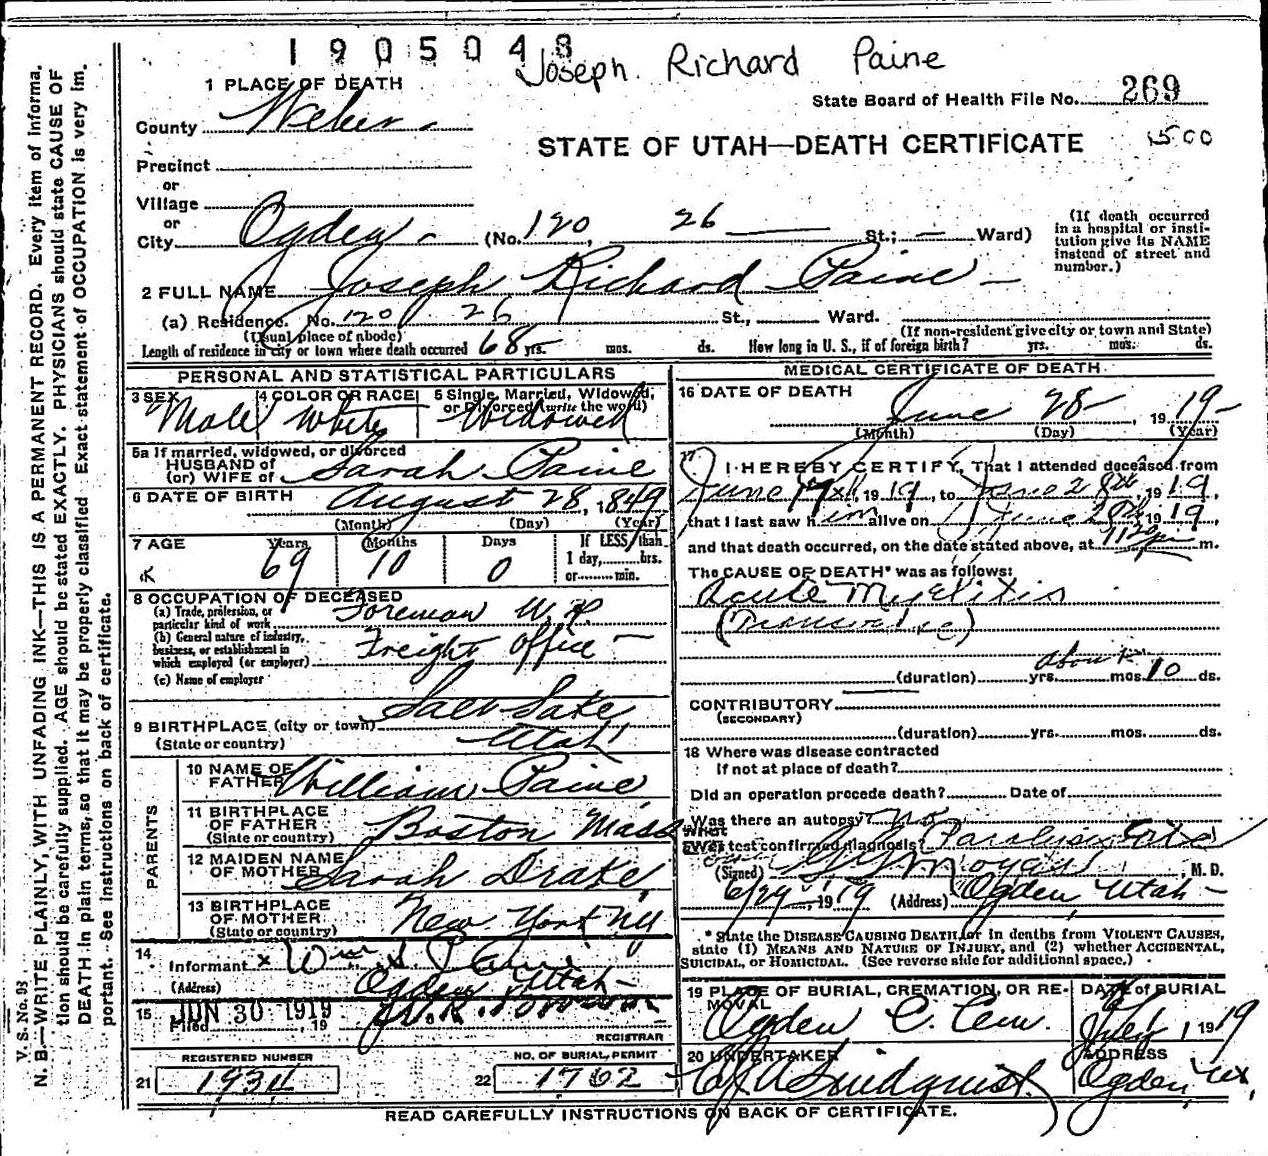 1905048
Joseph Richard Paine
1 PLACE OF DEATH
State Board of Health File No. 269
County Weber
STATE OF UTAH—DEATH CERTIFICATE
1500
Precinct
or
Village
or
City Ogden (No. 120 26 St.; — Ward)
(If death occurred in a hospital or institution give its NAME instead of street and number.)
2 FULL NAME Joseph Richard Paine
(a) Residence. No. 120 26 St., Ward.
(Usual place of abode) (If non-resident give city or town and State)
Length of residence in city or town where death occurred 68 yrs. mos. ds. How long in U. S., if of foreign birth? yrs. mos. ds.
PERSONAL AND STATISTICAL PARTICULARS
3 SEX Male
4 COLOR OR RACE White
5 Single, Married, Widowed, or Divorced (write the word) Widowed
5a If married, widowed, or divorced
HUSBAND of
(or) WIFE of Sarah Paine
6 DATE OF BIRTH August 28, 1849
(Month) (Day) (Year)
7 AGE Years Months Days If LESS than
69 10 0 1 day, hrs.
or min.
8 OCCUPATION OF DECEASED
(a) Trade, profession, or particular kind of work Foreman U.P.
(b) General nature of industry, business, or establishment in which employed (or employer) Freight office
(c) Name of employer
9 BIRTHPLACE (city or town) Salt Lake
(State or country) Utah
PARENTS
10 NAME OF FATHER William Paine
11 BIRTHPLACE OF FATHER (State or country) Boston Mass
12 MAIDEN NAME OF MOTHER Sarah Drake
13 BIRTHPLACE OF MOTHER (State or country) New York NY
14 Informant x Wm S. Paine
(Address) Ogden Utah
15 Filed JUN 30 1919, 19
REGISTRAR
REGISTERED NUMBER
21 1934
NO. OF BURIAL PERMIT
22 1762
MEDICAL CERTIFICATE OF DEATH
16 DATE OF DEATH June 28, 1919
(Month) (Day) (Year)
17 I HEREBY CERTIFY, That I attended deceased from
June 19th, 1919, to June 28th, 1919,
that I last saw him alive on June 28th, 1919,
and that death occurred, on the date stated above, at m.
The CAUSE OF DEATH* was as follows:
Acute Myelitis
(Transverse)
(duration) yrs. mos. about 10 ds.
CONTRIBUTORY
(SECONDARY)
(duration) yrs. mos. ds.
18 Where was disease contracted
If not at place of death?
Did an operation precede death? Date of
Was there an autopsy? No
What test confirmed diagnosis?
(Signed) M. D.
6/29, 1919 (Address) Ogden Utah
* State the DISEASE CAUSING DEATH, or in deaths from VIOLENT CAUSES, state (1) MEANS AND NATURE OF INJURY, and (2) whether ACCIDENTAL, SUICIDAL, or HOMICIDAL. (See reverse side for additional space.)
19 PLACE OF BURIAL, CREMATION, OR REMOVAL Ogden C. Cem.
DATE of BURIAL July 1 1919
20 UNDERTAKER Lindquist
ADDRESS Ogden, Ut
READ CAREFULLY INSTRUCTIONS ON BACK OF CERTIFICATE.
V. S. No. 93
N. B.—WRITE PLAINLY, WITH UNFADING INK—THIS IS A PERMANENT RECORD. Every item of informa.
tion should be carefully supplied. AGE should be stated EXACTLY. PHYSICIANS should state CAUSE OF
DEATH in plain terms, so that it may be properly classified. Exact statement of OCCUPATION is very im.
portant. See instructions on back of certificate.